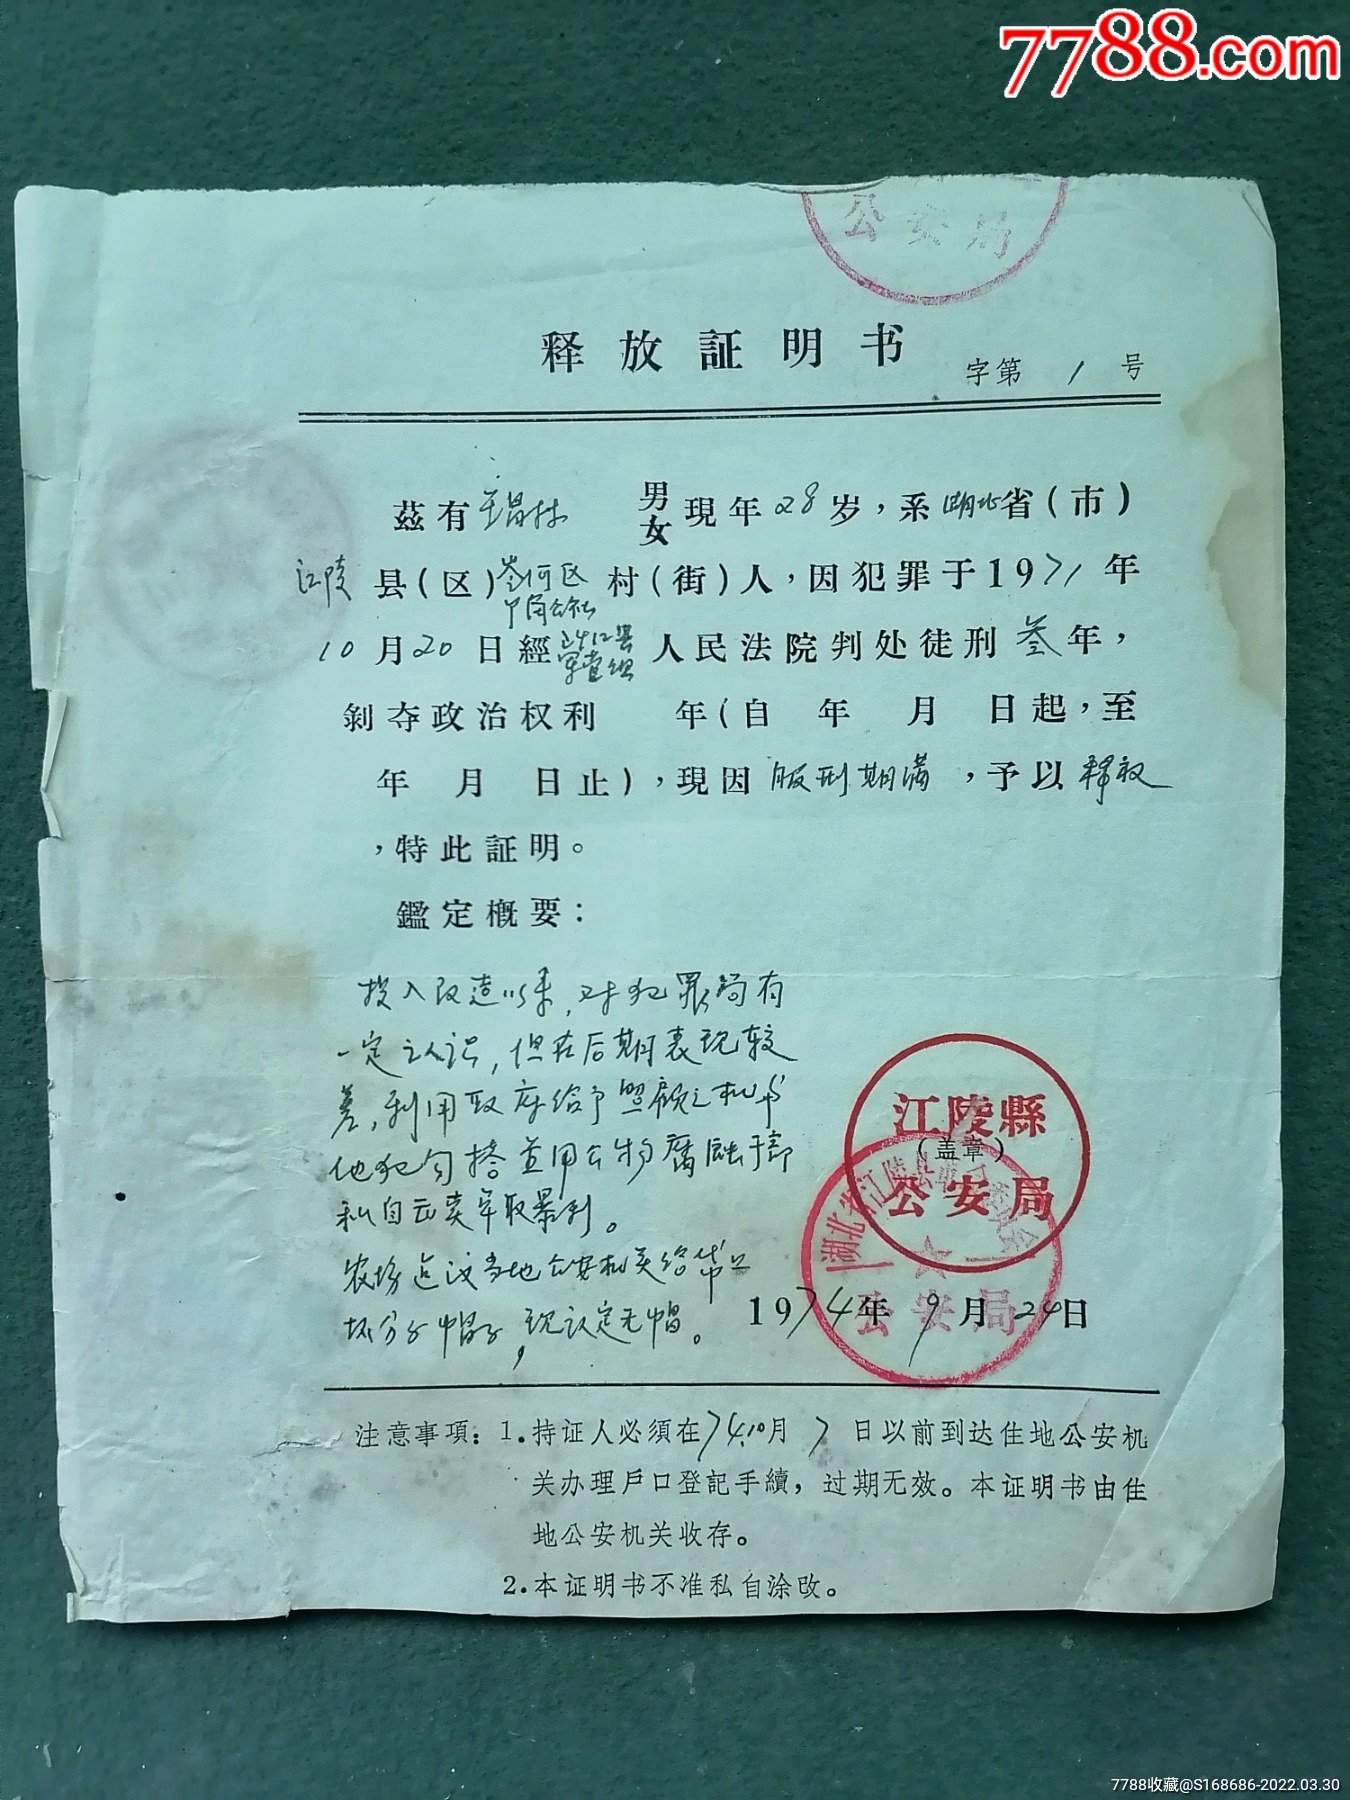 7788.com
公安局
释放証明书
字第 1 号
茲有 昌林 男女 現年28岁，系湖北省（市）
江陵县（区）岑河区 村（街）人，因犯罪于1971年
10月20日經 人民法院判处徒刑叁年，
剝夺政治权利 年（自 年 月 日起，至
年 月 日止），現因服刑期满，予以释放
，特此証明。
鑑定概要：
投入改造以来，对犯罪 有
一定认识，但在后期表现较
差，利用 给予照顾之机 书
他犯勾搭并用公物腐蚀干部
私自 卖 取暴利。
农场 议当地公安机关给 上
坏分子帽子，现认定无帽。
江陵縣
（盖章）
公安局
湖北省江陵县
公安局
1974年9月24日
注意事項：1.持证人必須在74.10月7日以前到达住地公安机
关办理戶口登記手續，过期无效。本证明书由住
地公安机关收存。
2.本证明书不准私自涂改。
7788收藏@S168686-2022.03.30